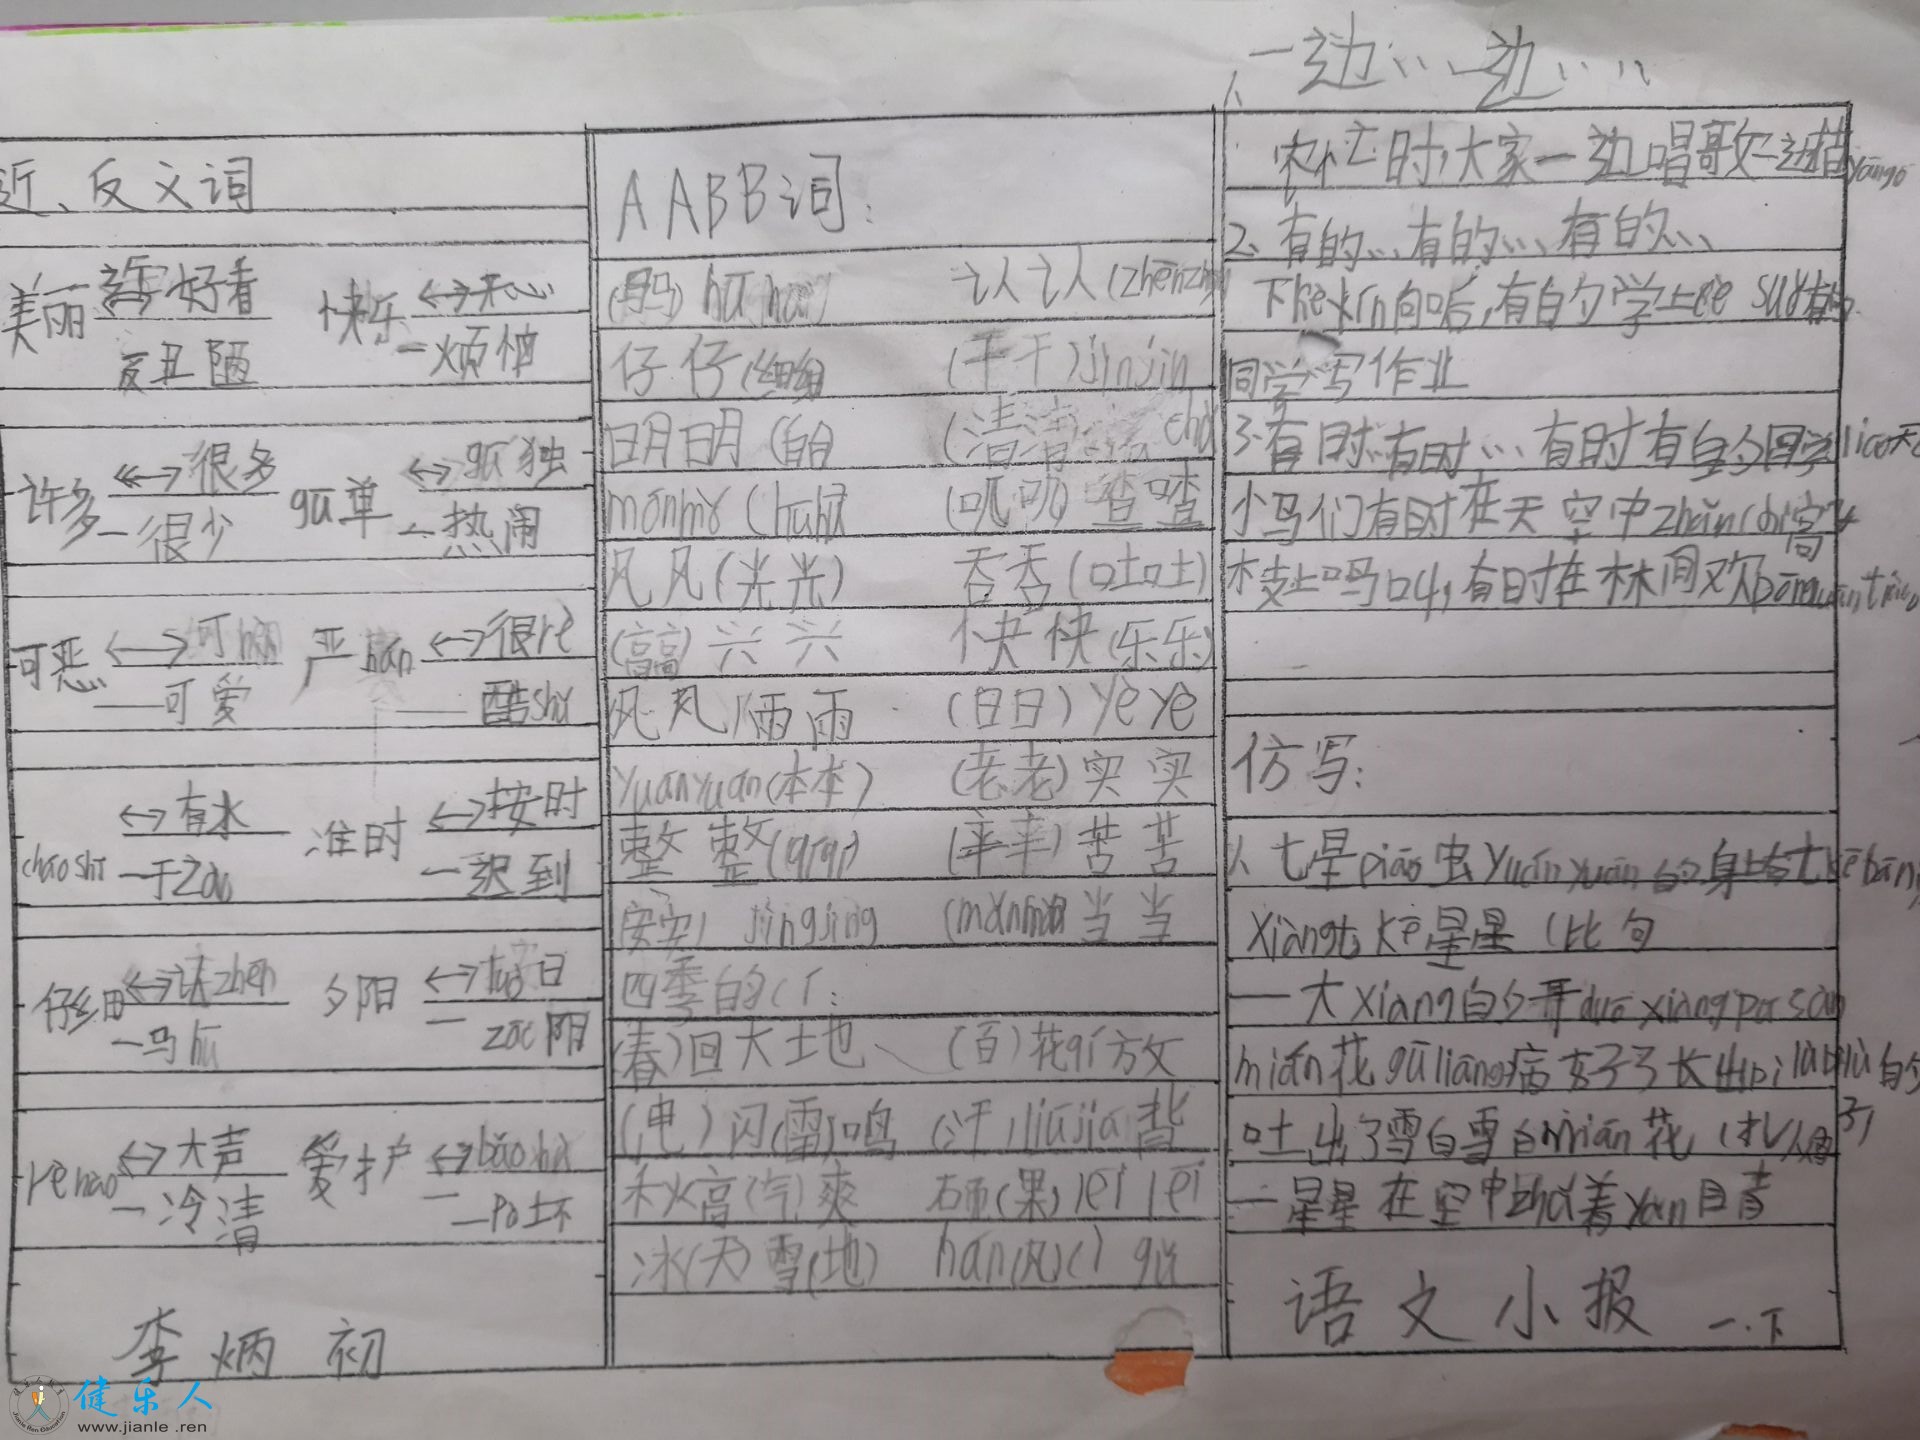 近、反义词
美丽 好看 快乐 ↔ 开心
反丑陋 — 烦恼
许多 ↔ 很多 gū单 ↔ 孤独
— 很少 — 热闹
可恶 ↔ 可 严hán ↔ 很rè
— 可爱 — 酷shǔ
cháo shī ↔ 有水 准时 ↔ 按时
— 干zào — 迟到
仔细 ↔ 认zhēn 夕阳 ↔ 日
— 马hu — 阳
rè nào ↔ 大声 爱护 ↔ bǎo hù
— 冷清 — pò坏
李炳初
AABB词:
(马马) hū hū 认认(zhēnzhēn
仔仔(细细 (干干)jìngjìng
明明(白白 (清清)chǔ
mànmàn(huhu (叽叽)喳喳
风风(光光) 吞吞(吐吐)
(高高)兴兴 快快(乐乐)
风风雨雨 (日日)yè yè
yuányuán(本本) (老老)实实
整整(qíqí) (辛辛)苦苦
(安安) jìngjìng (mǎnmǎn 当当
四季的():
(春)回大土地、 (百)花qí放
(电)闪(雷)鸣 (汗)liú jiā 背
秋高(气)爽 硕(果)lěi lěi
冰(天)雪(地) hán(风)() gǔ
1、一边……一边……
农忙时,大家一边唱歌一边插yāng
2、有的……有的……有的……
下kè 有的学
同学写作业
3、有时……有时……有时有的同学liáo天
小鸟们有时在天空中zhǎn chì高飞
枝上鸣叫,有时在林间欢
仿写:
1、七星piáo虫yuán yuán的身上有七kē bān
xiàng七kē星星(比句
一大xiàng的耳duo xiàng pa sǎn
mián花gū liang病好了长出bì lǜ bì lǜ的
吐出了雪白雪白mián花(拟人句)
一星星在空中zhǎ着yǎn目青
语文小报 一.下
健乐人
www.jianle.ren